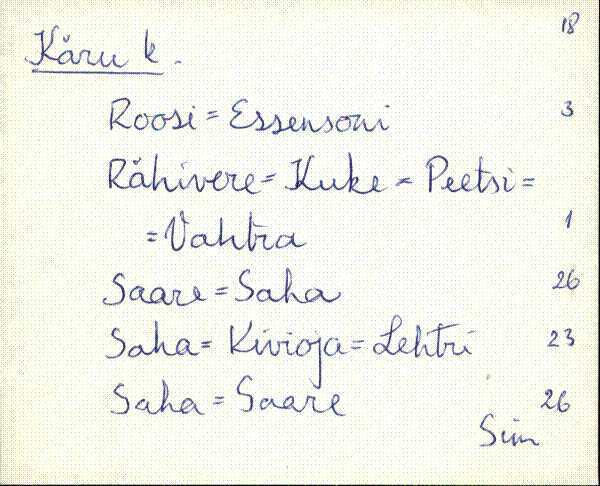 18
Käru k.
Roosi = Essensoni 3
Rähivere = Kuke = Peetsi =
= Vahtra 1
Saare = Saha 26
Saha = Kivioja = Lehtri 23
Saha = Saare 26
Sim